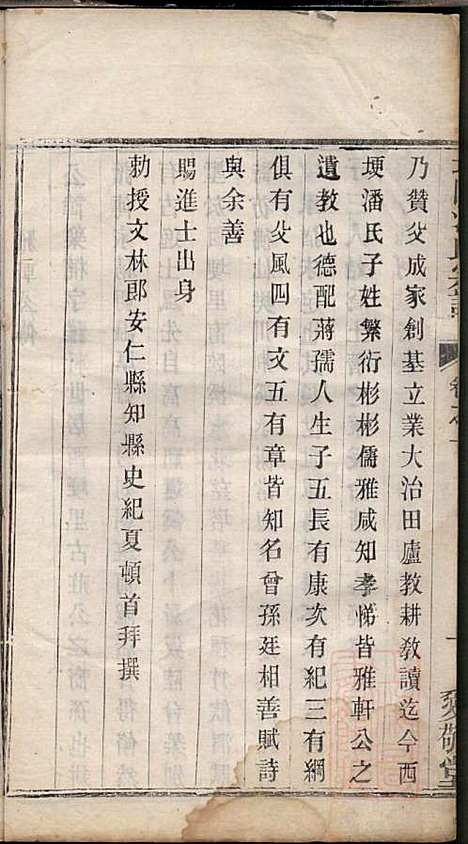 乃贊父成家創基立業大治田廬教耕教讀迄今西
埂潘氏子姓繁衍彬彬儒雅咸知孝悌皆雅軒公之
遺教也德配蔣孺人生子五長有康次有紀三有綱
俱有父風四有文五有章皆知名曾孫廷相善賦詩
與余善
賜進士出身
勅授文林郎安仁縣知縣史紀夏頓首拜撰
卷之一
愛敬堂